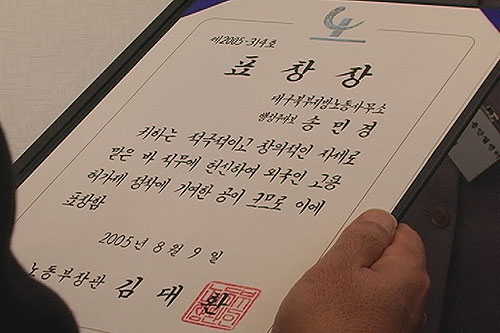 제2005-314호
표창장
대구북부지방노동사무소
행정주사보 송민경
귀하는 적극적이고 창의적인 자세로
맡은 바 직무에 헌신하여 외국인 고용
허가제 정착에 기여한 공이 크므로 이에
표창함
2005년 8월 9일
노동부장관 김대환